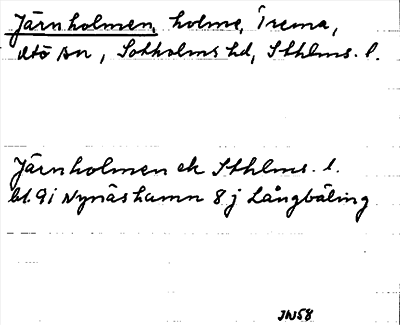 Järnholmen, holme, Trema,
Utö sn, Sotholms hd, Sthlms. l.
Järnholmen ek Sthlms. l.
bl. 9i Nynäshamn 8 j Långbäling
JW58